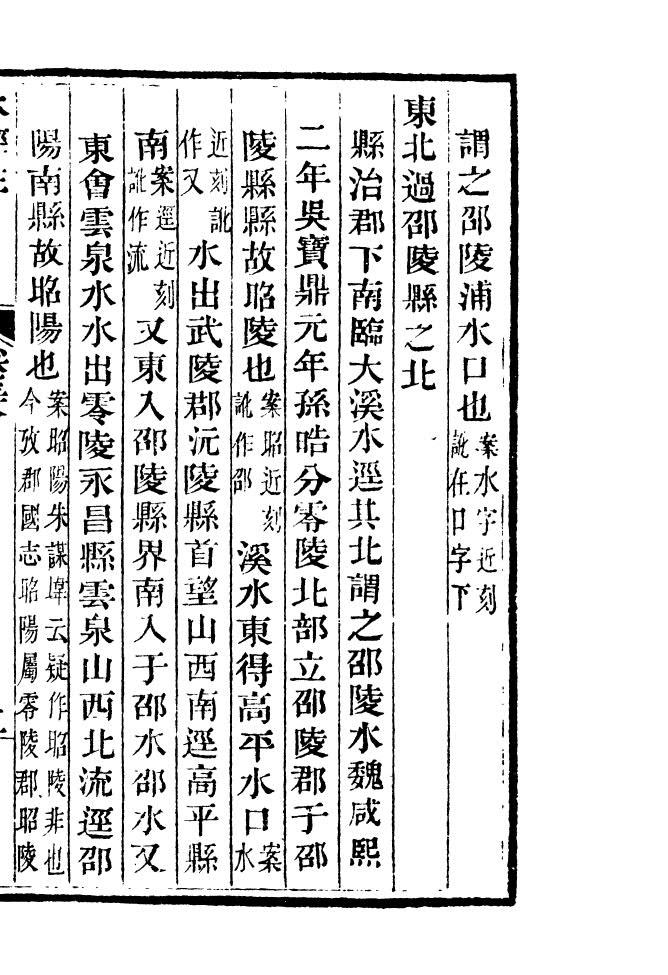 謂之邵陵浦水口也案水字近刻訛在口字下
東北過邵陵縣之北
縣治郡下南臨大溪水逕其北謂之邵陵水魏咸熙
二年吳寶鼎元年孫晧分零陵北部立邵陵郡于邵
陵縣縣故昭陵也案昭近刻訛作邵溪水東得高平水口案水
近刻訛作又水出武陵郡沅陵縣首望山西南逕高平縣
南案逕近刻訛作流又東入邵陵縣界南入于邵水邵水又
東會雲泉水水出零陵永昌縣雲泉山西北流逕邵
陽南縣故昭陽也案昭陽朱謀㙔云疑作昭陵非也今攷郡國志昭陽屬零陵郡昭陵